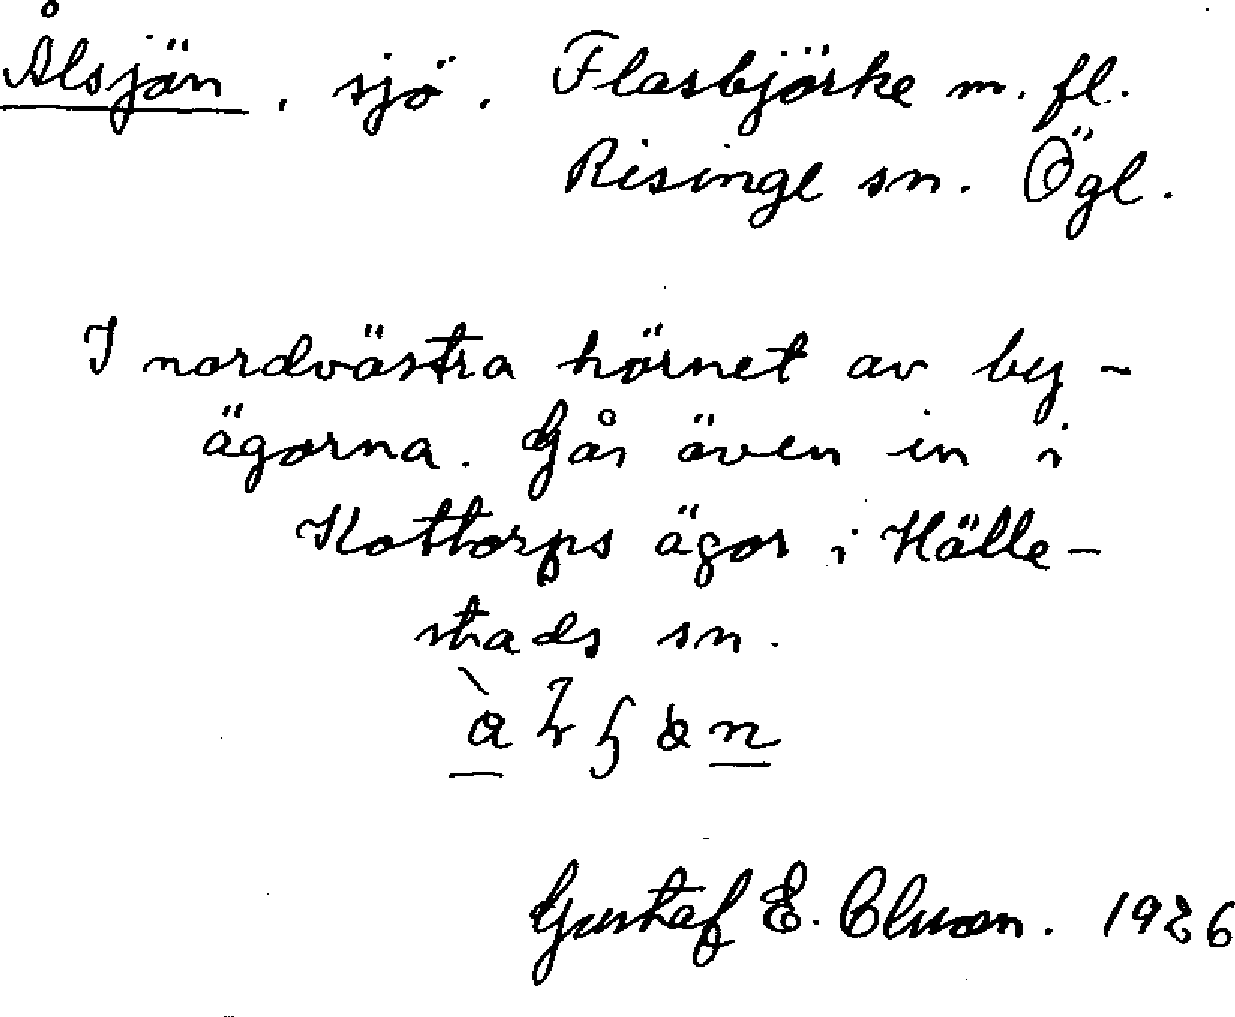 Ålsjön, sjö. Flasbjörke m. fl.
Risinge sn. Ögl.
I nordvästra hörnet av by-
ägorna. Går även in i
Kottorps ägor i Hälle-
stads sn.
Gustaf E. Cluson. 1926